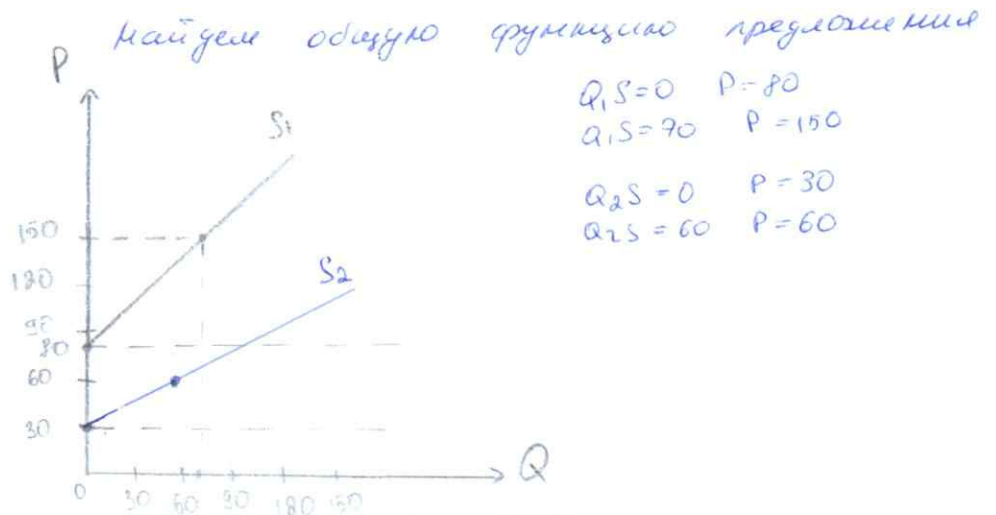 Найдем общую функцию предложения
P
Q₁S=0 P=80
Q₁S=70 P=150
Q₂S=0 P=30
Q₂S=60 P=60
S₁
S₂
150
120
90
80
60
30
0 30 60 90 120 150
Q